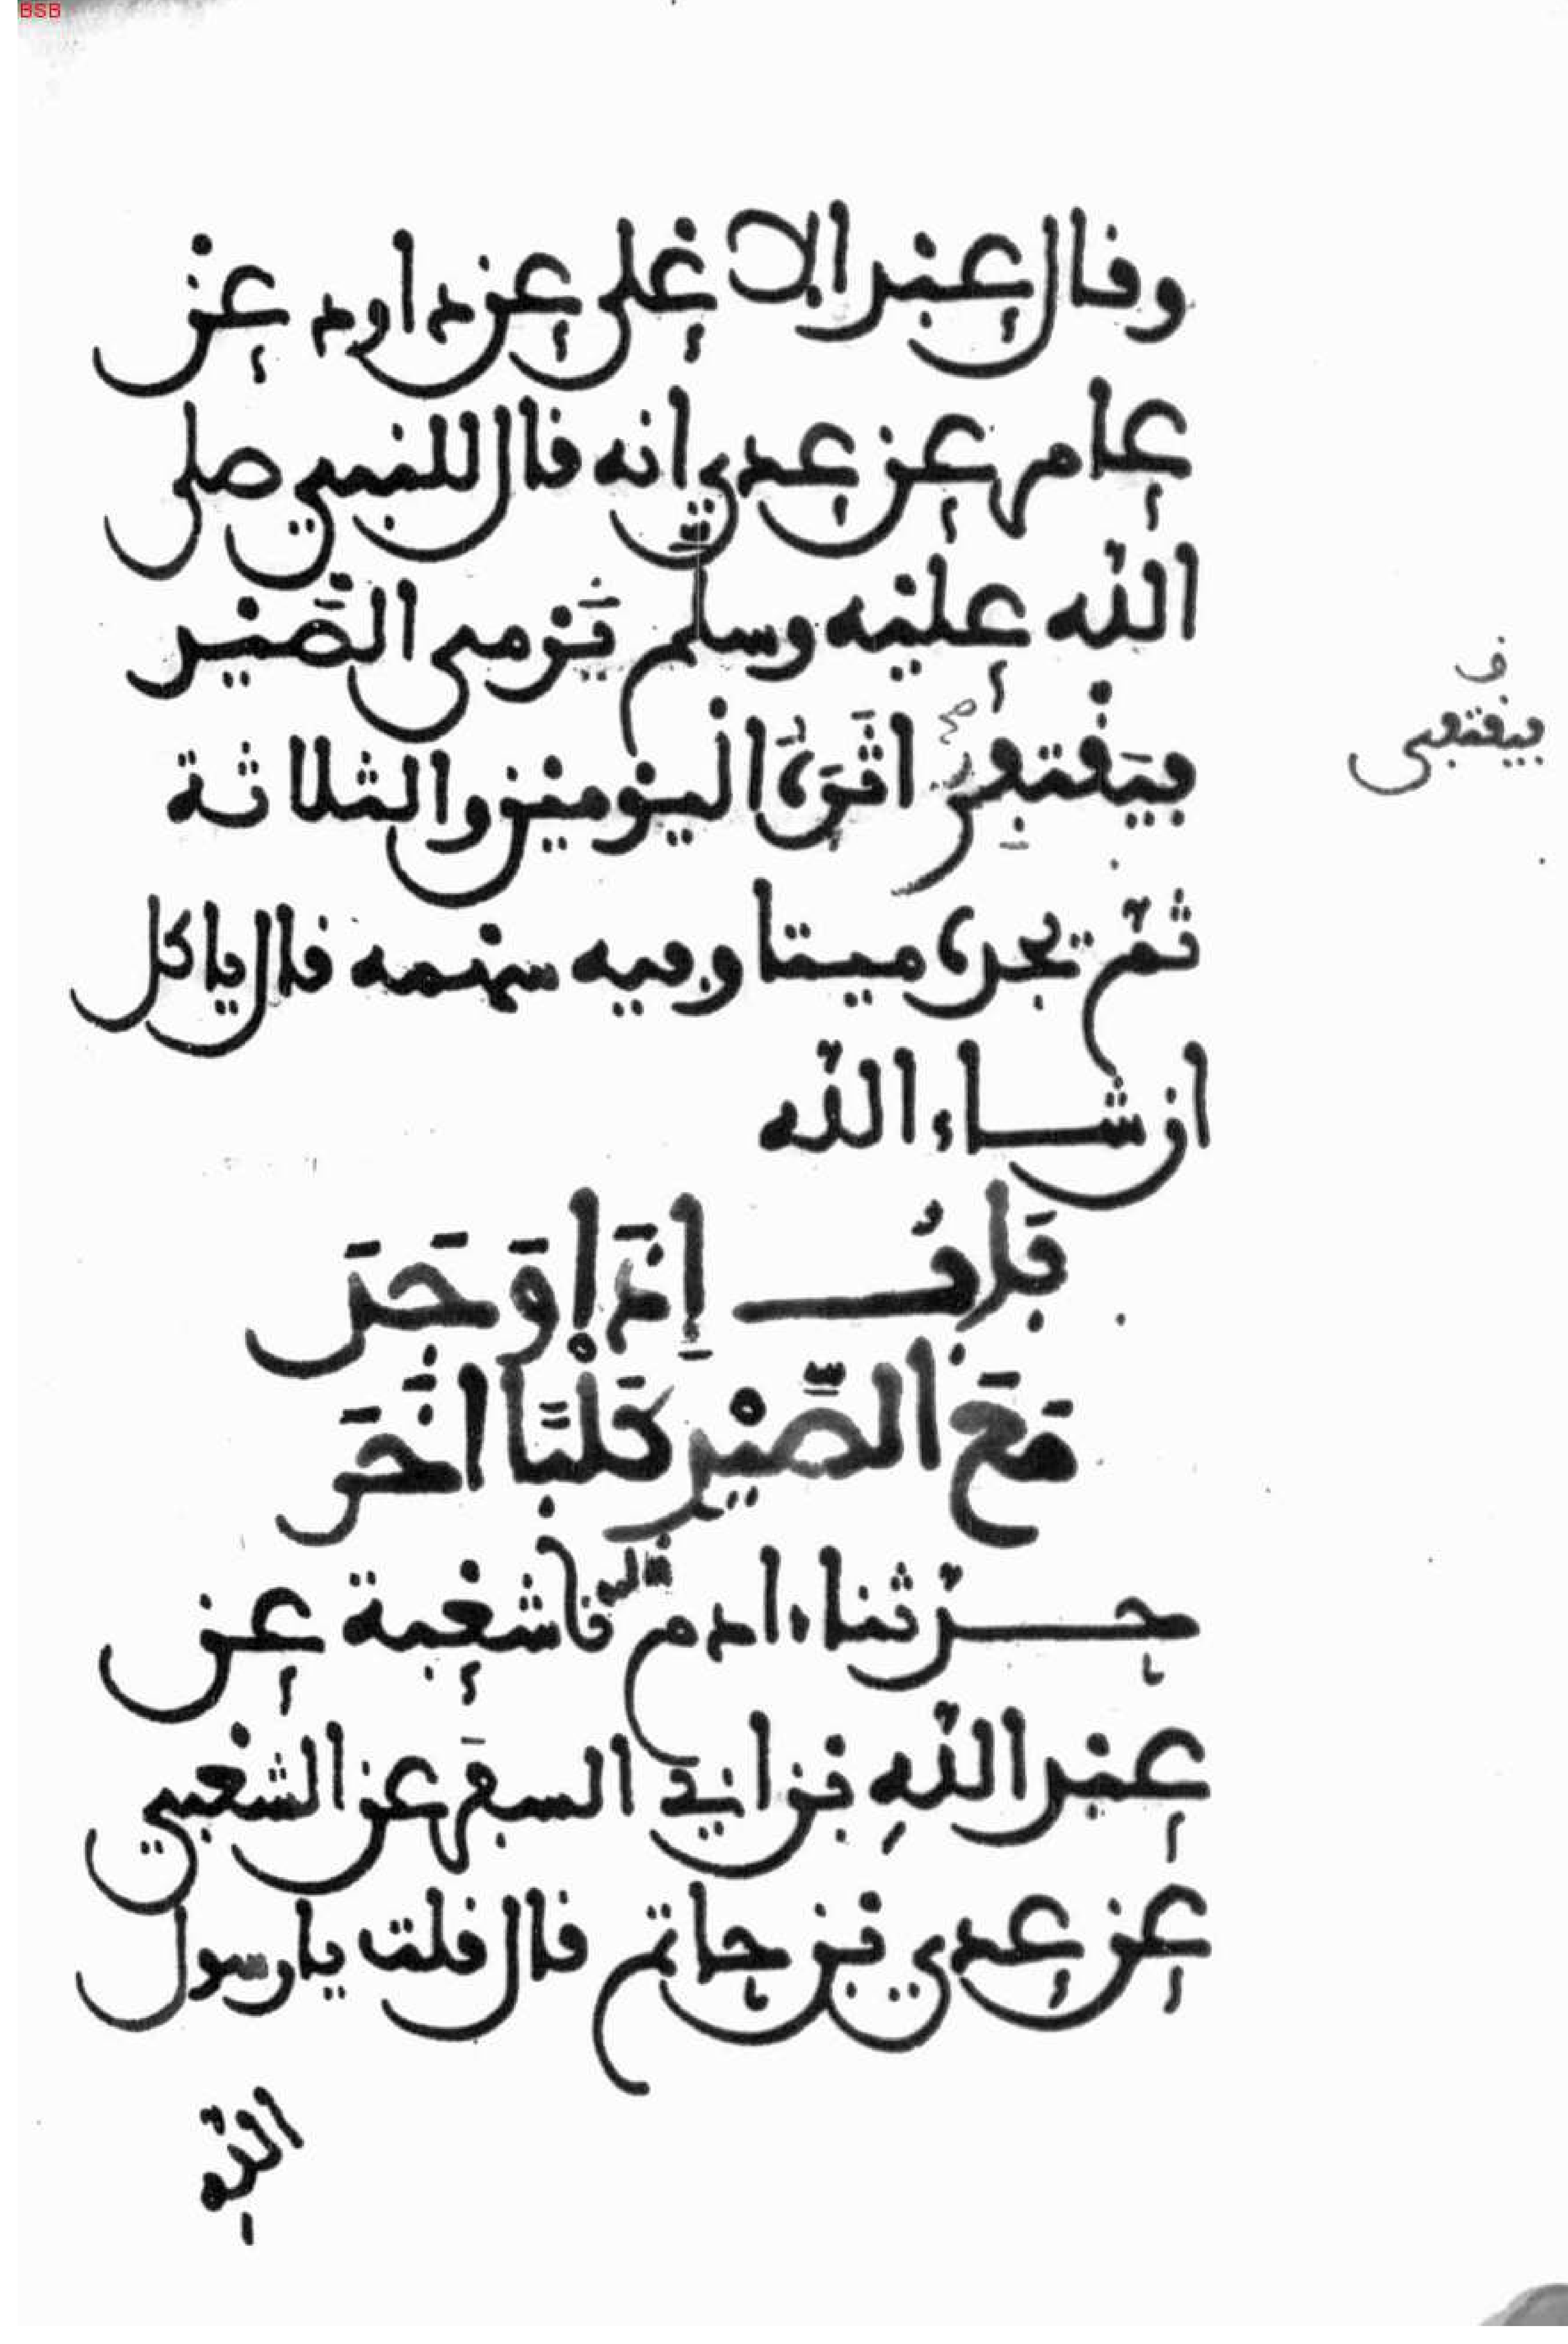 BSB
وقال عبد الاعلى عن داود عن
عامر عن عدي انه قال للنبي صلى
الله عليه وسلّم يَرْمى الصَّيْد
فيَقْتفِر اثَرَهُ اليوميْن والثلاثة
ف
فيقتفى
ثمّ يجده ميتا وفيه سهمه قال ياكل
ان شاء الله
بَابٌ اِذَا وَجَدَ
مَعَ الصَّيْدِ كَلْبًا اخَرَ
حدّثنا ءادم قال نا شعْبة عن
عبْد اللّهِ بن ابي السفَر عن الشعْبي
عن عدي بن حاتم قال قلت يا رسول
اللّه